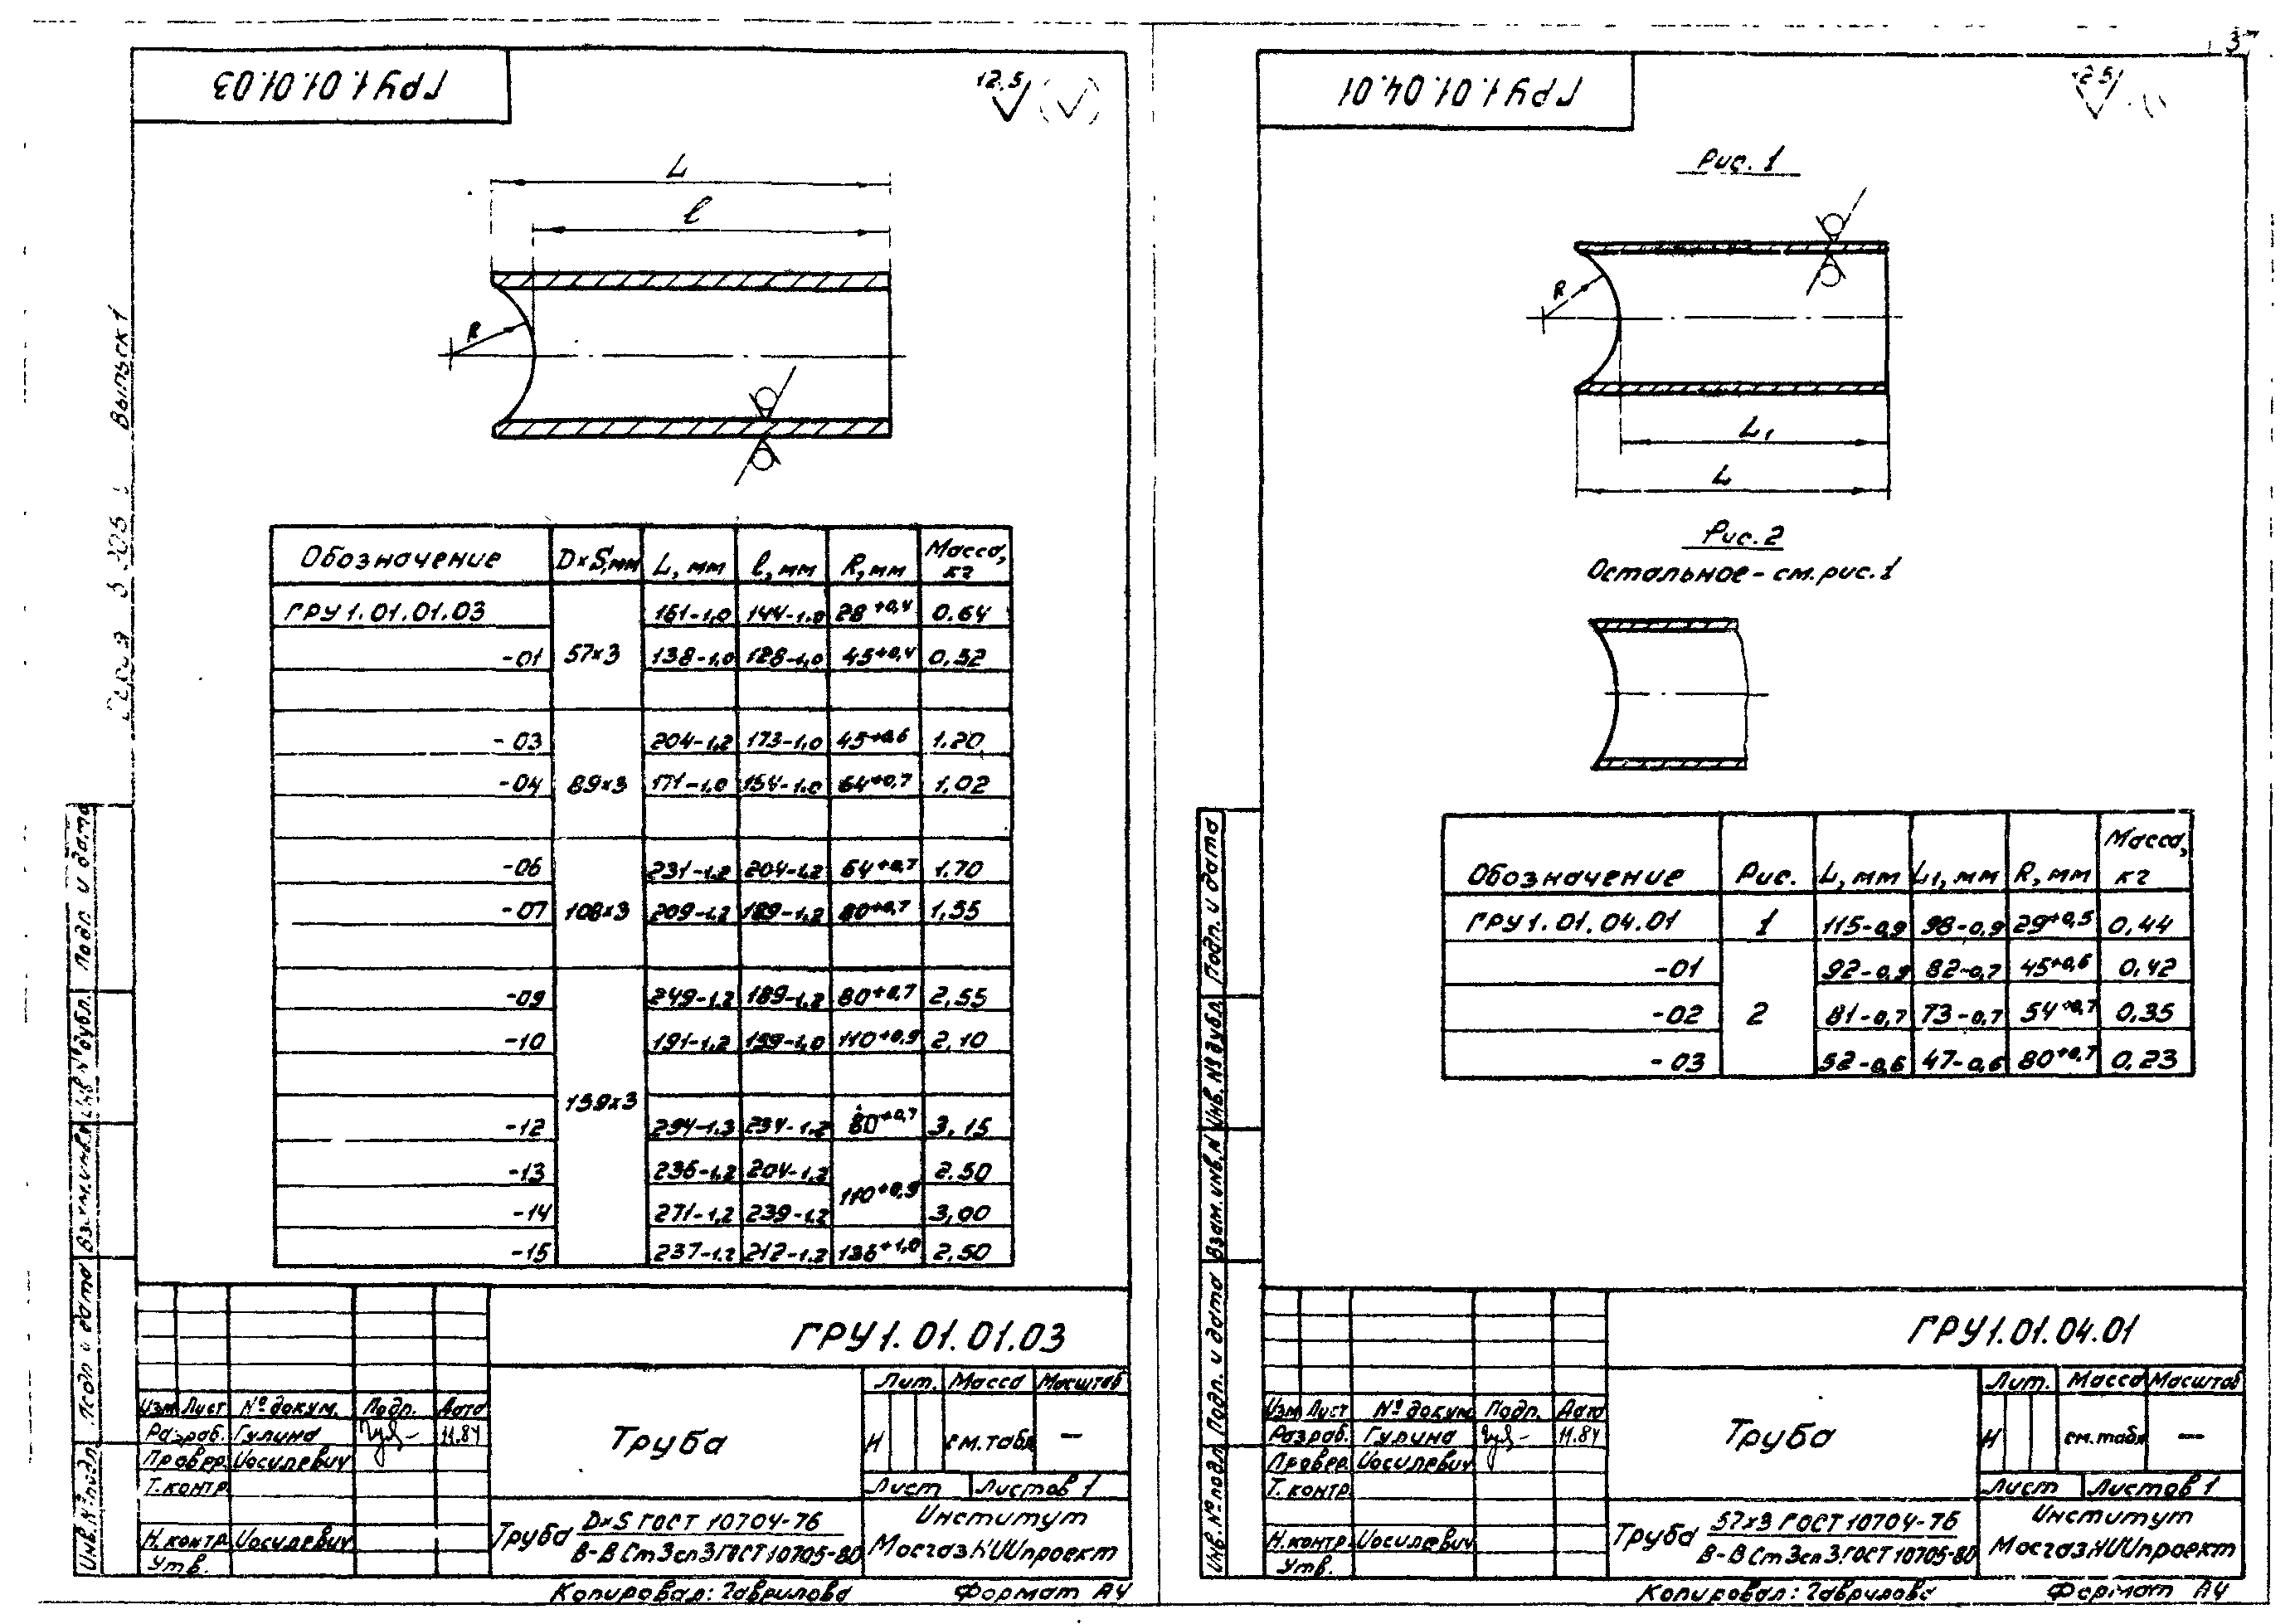 ГРУ1.01.01.03
12,5
L
l
R
Обозначение D×S,мм L, мм l, мм R, мм Масса, кг
ГРУ1.01.01.03 57×3 161-1,0 144-1,0 28+0,4 0.64
-01 138-1,0 128-1,0 45+0,4 0,52
-03 89×3 204-1,2 173-1,0 45+0,6 1.20
-04 171-1,0 154-1,0 +0,7 1,02
-06 108×3 231-1,2 204-1,2 +0,7 1.70
-07 209-1,2 189-1,2 80+0,7 1,55
-09 159×3 249-1,2 189-1,2 80+0,7 2,55
-10 191-1,2 159-1,0 110+0,9 2,10
-12 294-1,3 234-1,2 80+0,7 3,15
-13 236-1,2 204-1,2 110+0,9 2.50
-14 271-1,2 239-1,2 3,00
-15 237-1,2 212-1,2 136+1,0 2,50
ГРУ1.01.01.03
Изм Лист № докум. Подп. Дата
Разраб. Гулина 11.84
Провер. Иосилевич
Т.контр.
Н.контр. Иосилевич
Утв.
Труба
Лит. Масса Масштаб
И см.табл —
Лист Листов 1
Труба D×S ГОСТ 10704-76
В-В Ст3сп3 ГОСТ 10705-80
Институт
МосгазНИИпроект
Копировал: Гаврилова Формат А4
Выпуск 1
Подп. и дата
Инв.№ дубл.
Взам.инв.№
Подп. и дата
Инв.№ подл.
3
ГРУ1.01.04.01
Рис. 1
R
L1
L
Рис. 2
Остальное - см. рис. 1
Обозначение Рис. L, мм L1, мм R, мм Масса, кг
ГРУ1.01.04.01 1 115-0,9 98-0,9 29+0,5 0,44
-01 2 92-0,9 82-0,7 45+0,6 0,42
-02 81-0,7 73-0,7 54+0,7 0,35
-03 52-0,6 47-0,6 80+0,7 0,23
ГРУ1.01.04.01
Изм Лист № докум Подп. Дата
Разраб. Гулина 11.84
Провер. Иосилевич
Т.контр.
Н.контр. Иосилевич
Утв.
Труба
Лит. Масса Масштаб
И см.табл —
Лист Листов 1
Труба 57×3 ГОСТ 10704-76
В-В Ст3сп3 ГОСТ 10705-80
Институт
МосгазНИИпроект
Копировал: Гаврилова Формат А4
Подп. и дата
Инв.№ дубл.
Взам.инв.№
Подп. и дата
Инв.№ подл.